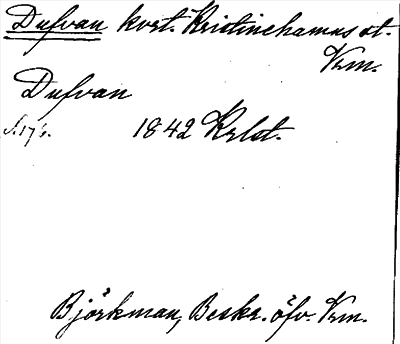 Dufvan kvrt. Kristinehamns st.
Vrm.
Dufvan
1842 Krlst.
Björkman, Beskr. öfv. Vrm.